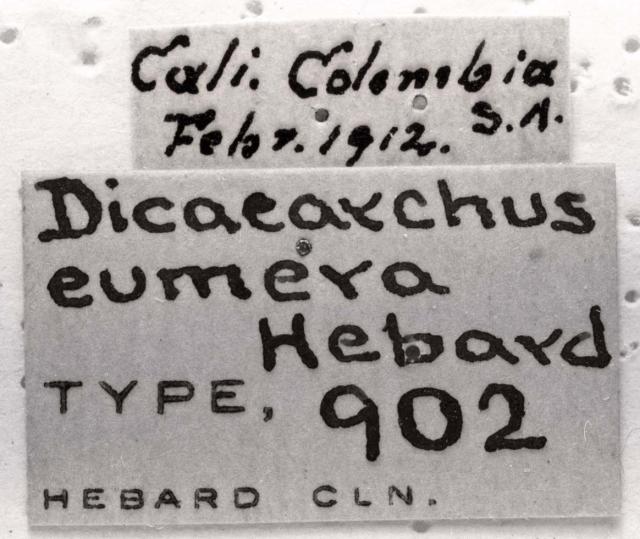 Cali. Colombia
Febr. 1912. S.A.
Dicaearchus
eumera
Hebard
TYPE, 902
HEBARD CLN.